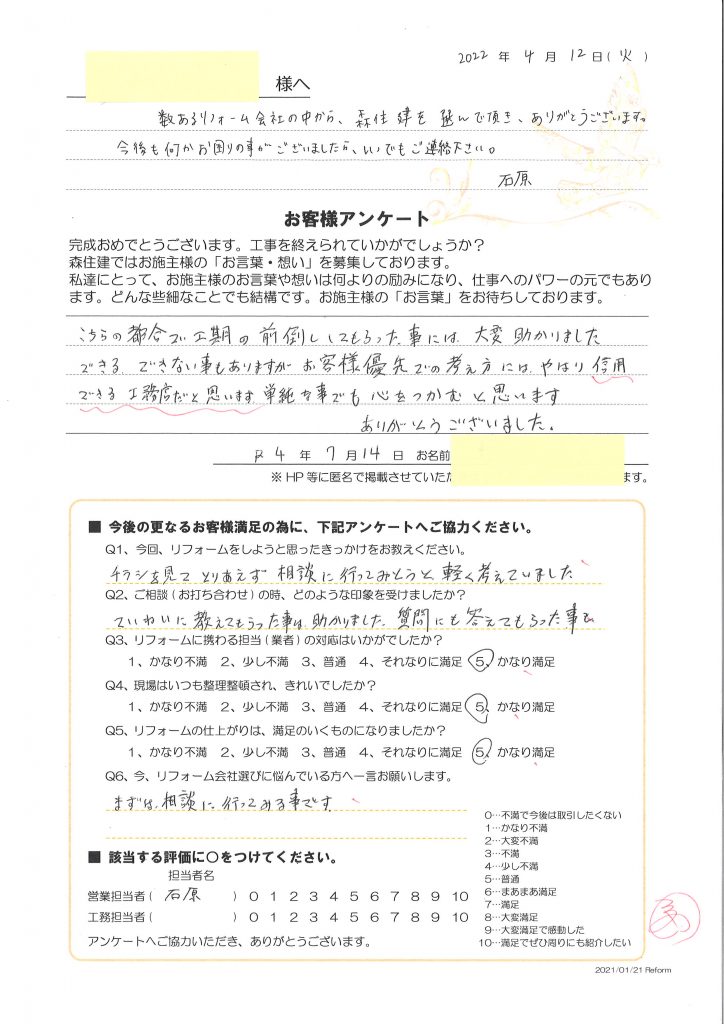 2022 年 4 月 12 日(火)
様へ
数あるリフォーム会社の中から、森住建を選んで頂き、ありがとうございます。
今後も何かお困りの事がございましたら、いつでもご連絡下さい。
石原
お客様アンケート
完成おめでとうございます。工事を終えられていかがでしょうか？
森住建ではお施主様の「お言葉・想い」を募集しております。
私達にとって、お施主様のお言葉や想いは何よりの励みになり、仕事へのパワーの元でもあり
ます。どんな些細なことでも結構です。お施主様の「お言葉」をお待ちしております。
こちらの都合で工期の前倒ししてもらった事には、大変助かりました
できる、できない事もありますがお客様優先での考え方には、やはり信用
できる工務店だと思います。単純な事でも心をつかむと思います
ありがとうございました。
R 4 年 7 月 14 日 お名前
※HP等に匿名で掲載させていただ ます。
■ 今後の更なるお客様満足の為に、下記アンケートへご協力ください。
Q1、今回、リフォームをしようと思ったきっかけをお教えください。
チラシを見てとりあえず相談に行ってみようと軽く考えていました
Q2、ご相談(お打ち合わせ)の時、どのような印象を受けましたか？
ていねいに教えてもらった事は、助かりました。質問にも答えてもらった事も
Q3、リフォームに携わる担当(業者)の対応はいかがでしたか？
1、かなり不満 2、少し不満 3、普通 4、それなりに満足 5、かなり満足
Q4、現場はいつも整理整頓され、きれいでしたか？
1、かなり不満 2、少し不満 3、普通 4、それなりに満足 5、かなり満足
Q5、リフォームの仕上がりは、満足のいくものになりましたか？
1、かなり不満 2、少し不満 3、普通 4、それなりに満足 5、かなり満足
Q6、今、リフォーム会社選びに悩んでいる方へ一言お願いします。
まずは、相談に行ってみる事です
■ 該当する評価に○をつけてください。
担当者名
営業担当者( 石原 ) 0 1 2 3 4 5 6 7 8 9 10
工務担当者( ) 0 1 2 3 4 5 6 7 8 9 10
アンケートへご協力いただき、ありがとうございます。
0…不満で今後は取引したくない
1…かなり不満
2…大変不満
3…不満
4…少し不満
5…普通
6…まあまあ満足
7…満足
8…大変満足
9…大変満足で感動した
10…満足でぜひ周りにも紹介したい
2021/01/21 Reform